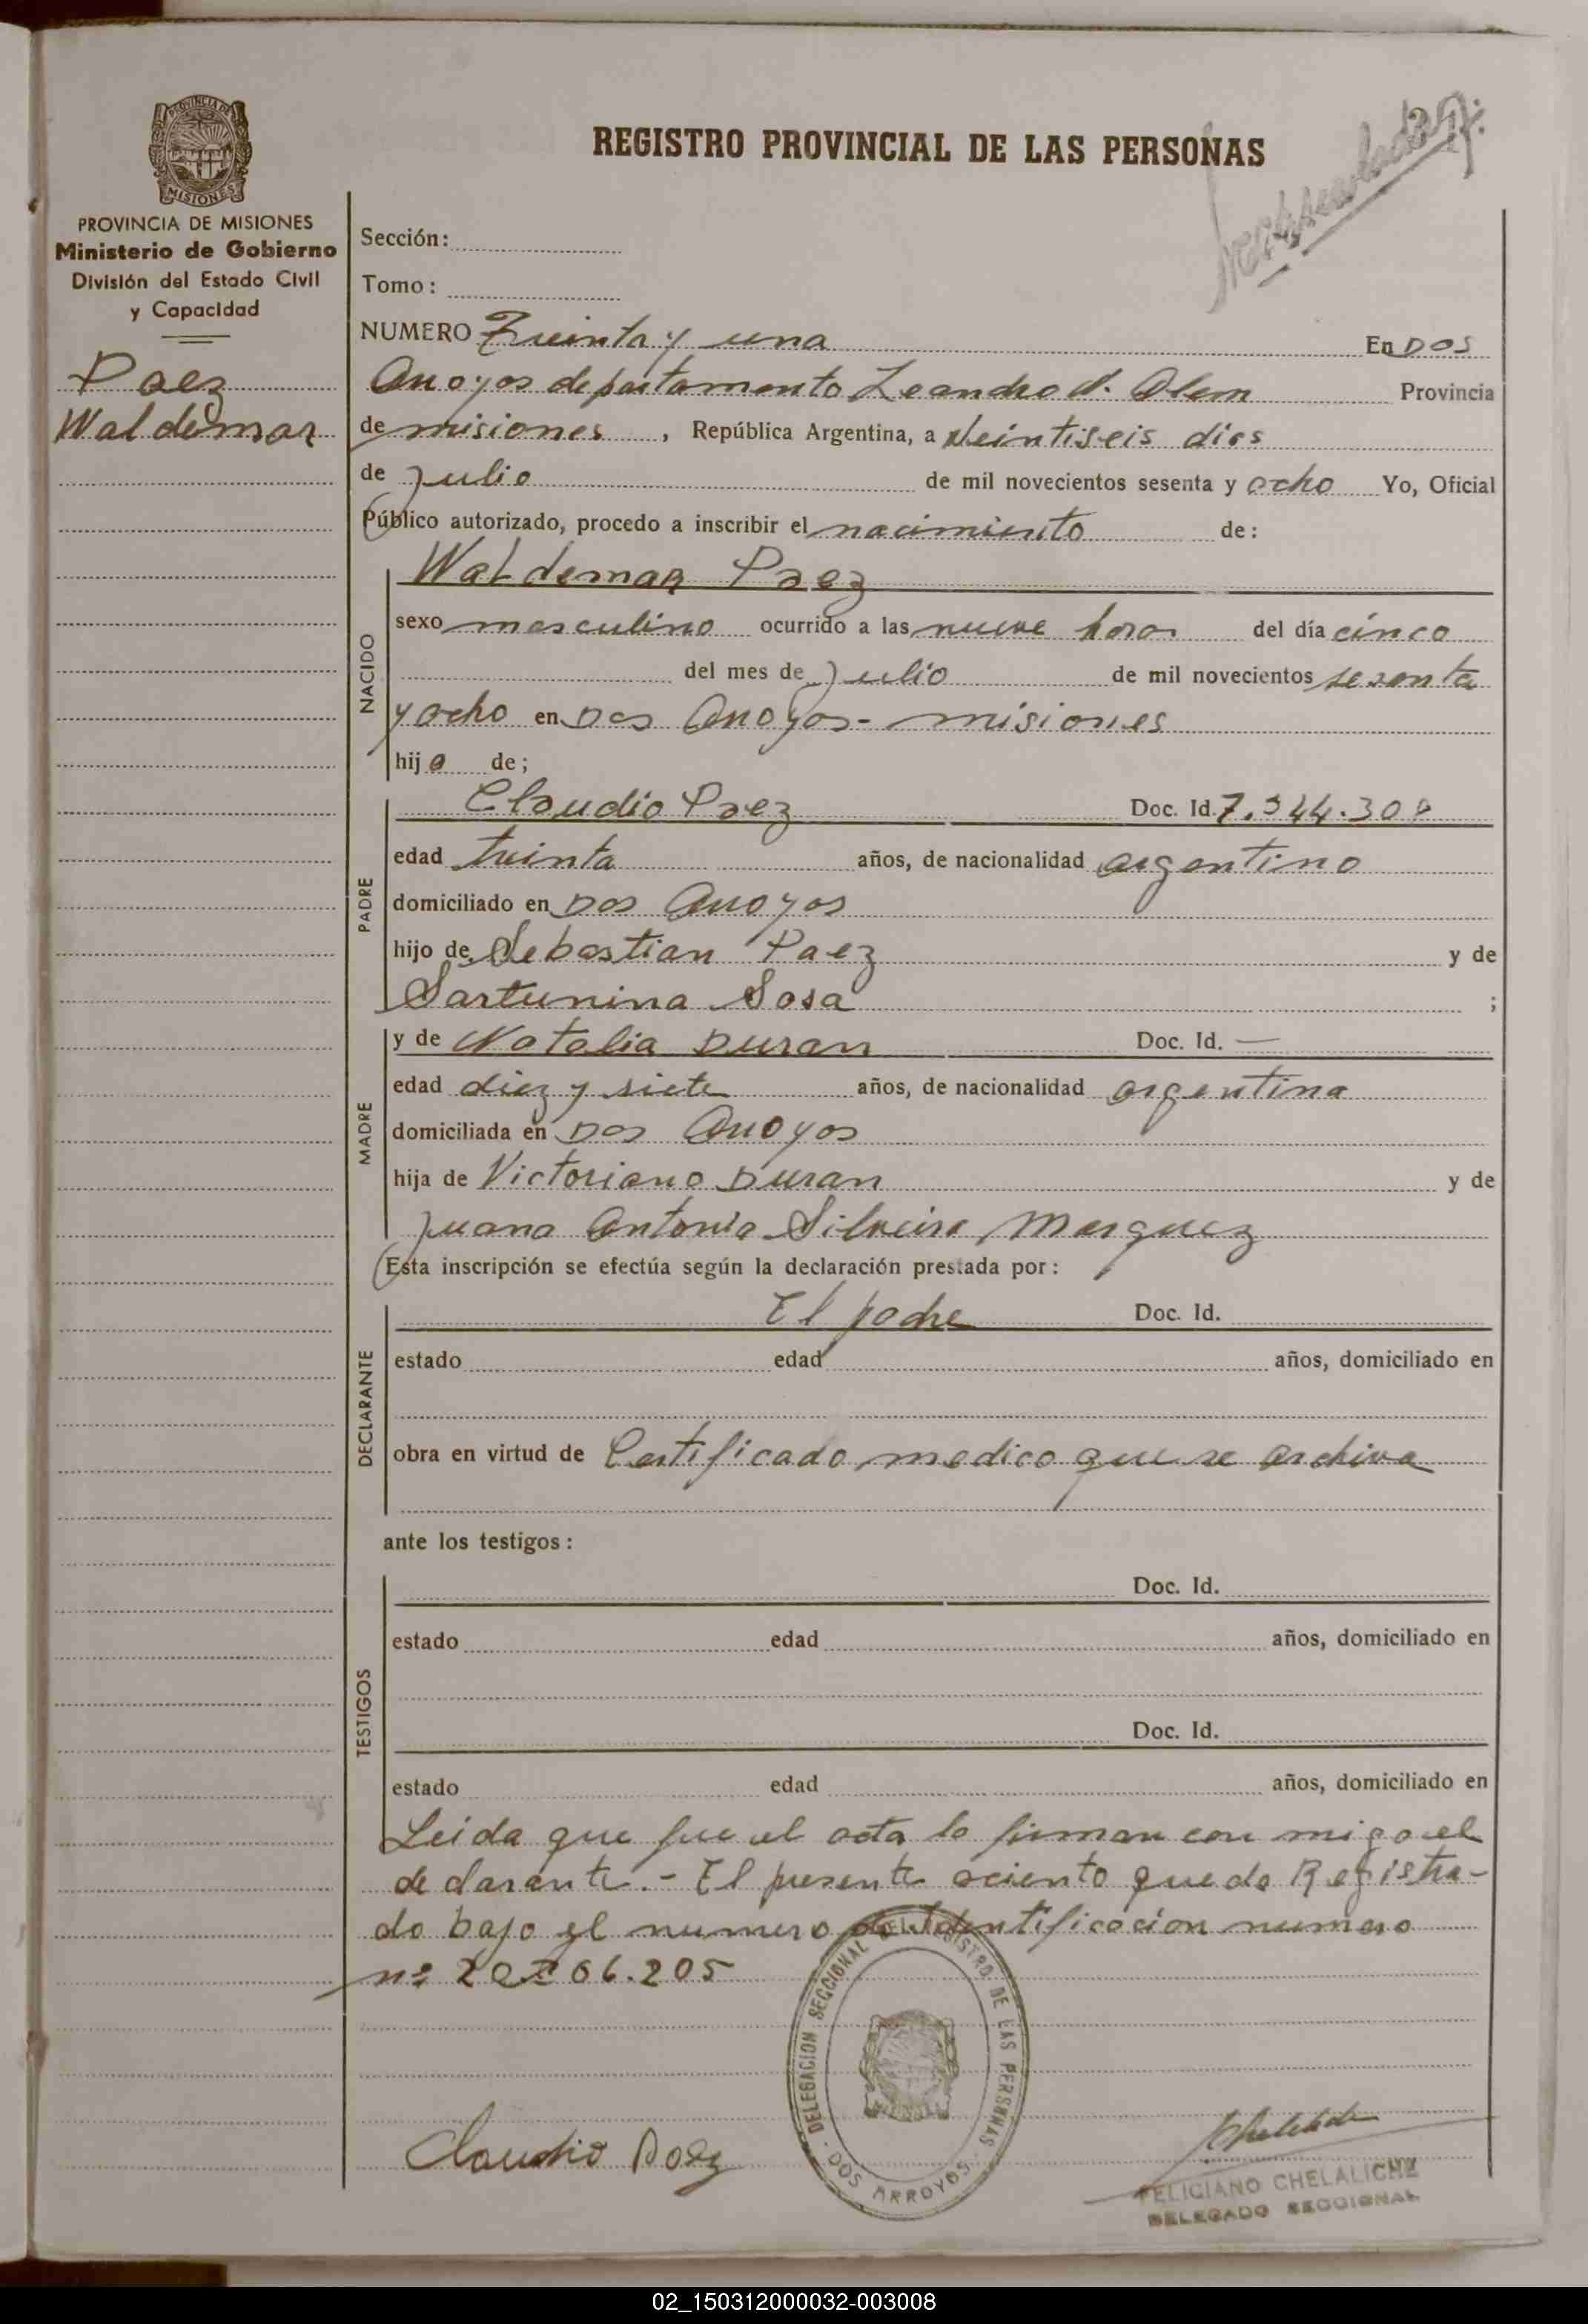 PROVINCIA DE
MISIONES
PROVINCIA DE MISIONES
Ministerio de Gobierno
División del Estado Civil
y Capacidad
Paez
Waldemar
REGISTRO PROVINCIAL DE LAS PERSONAS
Sección:
Tomo:
NUMERO Treinta y una En Dos
Arroyos departamento Leandro N. Alem Provincia
de misiones, República Argentina, a Veintiseis dias
de Julio de mil novecientos sesenta y ocho Yo, Oficial
Público autorizado, procedo a inscribir el nacimiento de:
NACIDO
Waldemar Paez
sexo masculino ocurrido a las nueve horas del día cinco
del mes de Julio de mil novecientos sesenta
y ocho en Dos Arroyos - misiones
hijo de;
PADRE
Claudio Paez Doc. Id. 7.544.30
edad treinta años, de nacionalidad argentino
domiciliado en Dos Arroyos
hijo de Sebastian Paez y de
Sarturnina Sosa ;
MADRE
y de Natalia Duran Doc. Id. —
edad diez y siete años, de nacionalidad argentina
domiciliada en Dos Arroyos
hija de Victoriano Duran y de
Juana Antonia Silveira Marquez
Esta inscripción se efectúa según la declaración prestada por:
DECLARANTE
El padre Doc. Id.
estado edad años, domiciliado en
obra en virtud de Certificado medico que se archiva
ante los testigos:
TESTIGOS
Doc. Id.
estado edad años, domiciliado en
Doc. Id.
estado edad años, domiciliado en
Leida que fue el acta la firman con migo el
declarante.- El presente aciento queda Registra-
do bajo el numero de Identificacion numero
nº 20 06.205
DELEGACION SECCIONAL DEL REGISTRO DE LAS PERSONAS
DOS ARROYOS
Claudio Paez
FELICIANO CHELALICHE
DELEGADO SECCIONAL
02_150312000032-003008